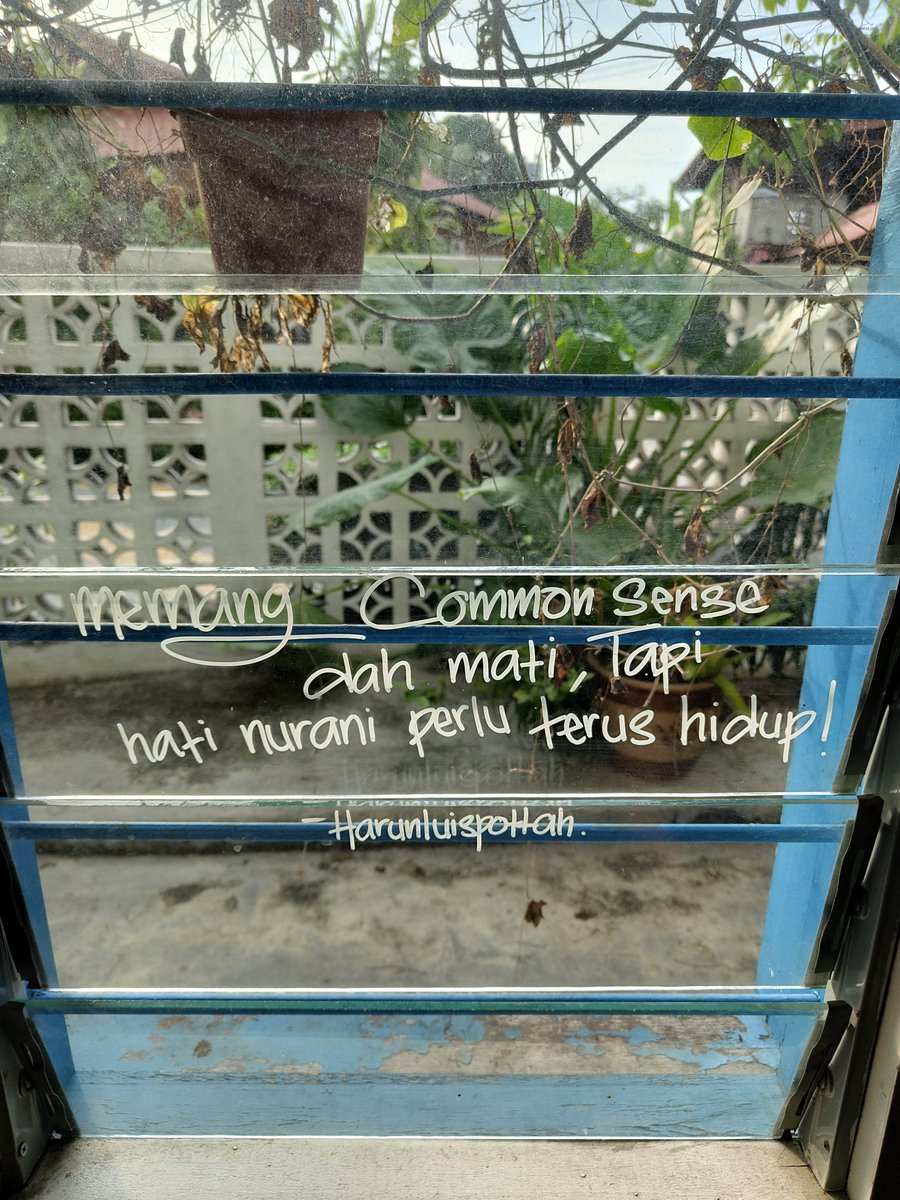 memang Common Sense
dah mati, Tapi
hati nurani perlu terus hidup!
- Harunluispottah.